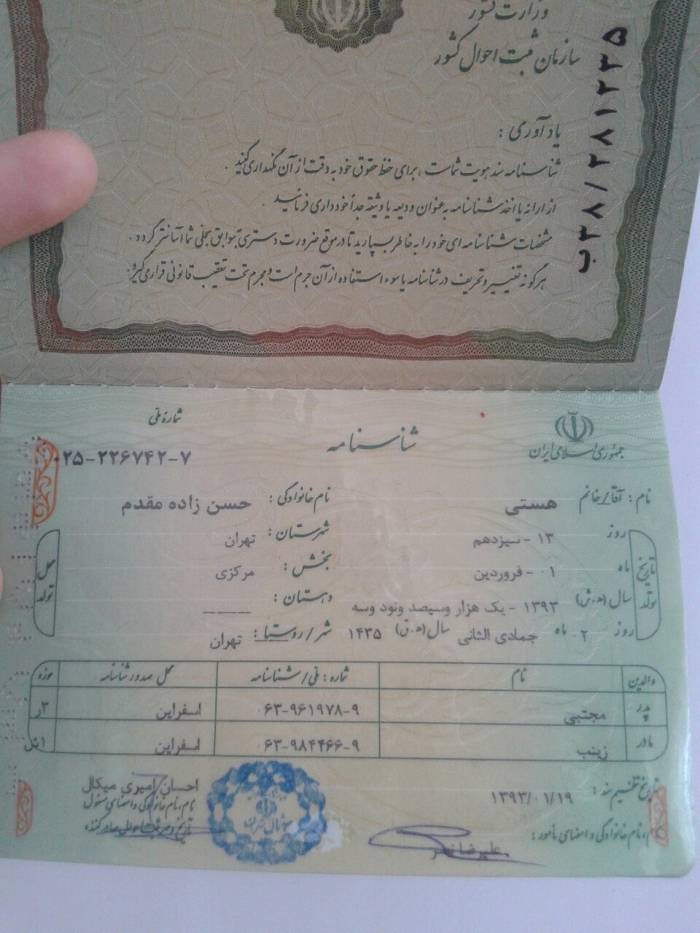 وزارت کشور
سازمان ثبت احوال کشور
ب۳۸/۲۸۱۲۳۵
یادآوری :
شناسنامه سند هویت شماست ، برای حفظ حقوق خود به دقت از آن نگهداری کنید .
از ارائه یا اخذ شناسنامه به عنوان ودیعه یا وثیقه جداً خودداری فرمائید .
مشخصات شناسنامه ای خود را به خاطر بسپارید تا در موقع ضرورت دسترسی به سوابق سجلی شما آسانتر گردد .
هرگونه تغییر و تحریف در شناسنامه یا سوء استفاده از آن جرم است و مجرم تحت تعقیب قانونی قرار می گیرد.
جمهوری اسلامی ایران
شناسنامه
شماره ملی
۰۲۵-۲۲۶۷۴۲-۷
نام : آقا/خانم هستی نام خانوادگی : حسن زاده مقدم
تاریخ تولد
روز ۱۳ - سیزدهم
ماه ۰۱ - فروردین
سال (ه.ش) ۱۳۹۳ - یک هزار وسیصد ونود وسه
روز ۲ ماه جمادی الثانی سال (ه.ق) ۱۴۳۵
محل تولد
شهرستان : تهران
بخش : مرکزی
دهستان : ------
شهر/روستا : تهران
والدین نام شماره : ملی/شناسنامه محل صدور شناسنامه حوزه
پدر مجتبی ۰۶۳-۹۶۱۹۷۸-۹ اسفراین ۳ر
مادر زینب ۰۶۳-۹۸۴۴۶۶-۹ اسفراین
تاریخ تنظیم سند : ۱۳۹۳/۰۱/۱۹
نام، نام خانوادگی و امضای مأمور : علیرضا
احسان امیری میکال
نام، نام خانوادگی و امضای مسئول